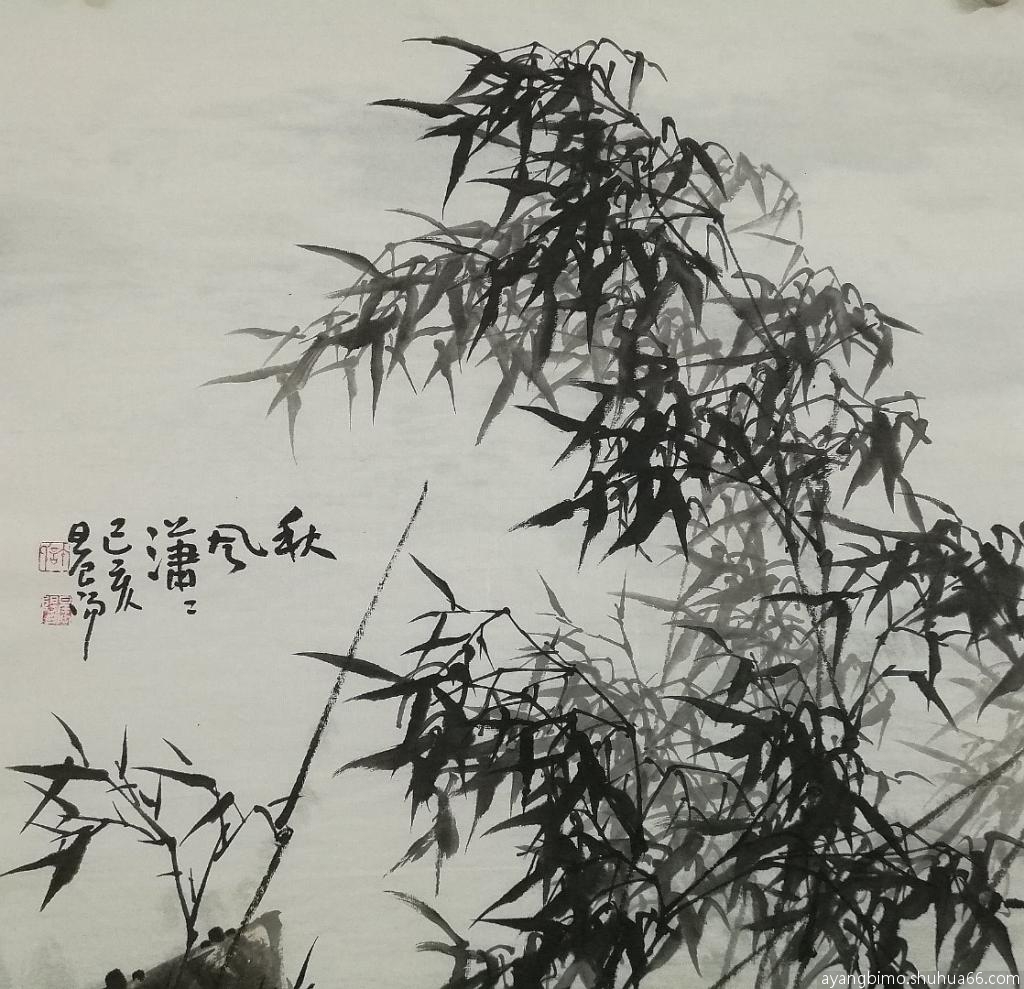 秋风潇〻
己亥
晨阳
ayangbimo.shuhua66.com